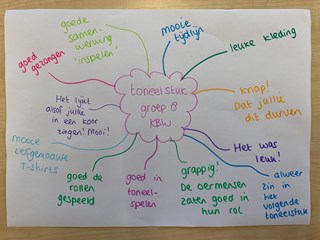 goede
samen-
werking
"inspelen"
mooie
tijdlijn
leuke kleding
goed
gezongen
toneelstuk
groep 8
KBW
knap!
Dat jullie
dit durven
Het lijkt
alsof jullie
in een koor
zingen! Mooi!
Het was
leuk!
mooie
zelfgemaakte
T-shirts
goed de
rollen
gespeeld
goed in
toneel-
spelen
grappig!
De oermensen
zaten goed in
hun rol
alweer
zin in
het
volgende
toneelstuk